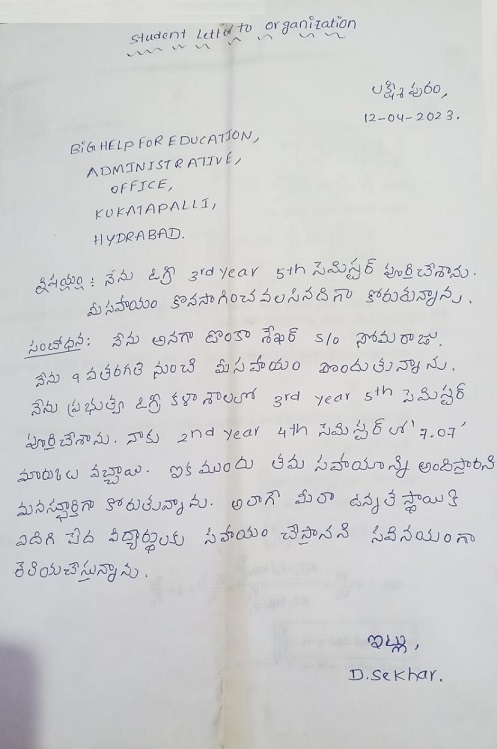 Student Letter to organization
లక్ష్మీపురం,
12-04-2023.
BIG HELP FOR EDUCATION,
ADMINISTRATIVE,
OFFICE,
KUKATAPALLI,
HYDRABAD.
విషయం : నేను డిగ్రీ 3rd year 5th సెమిస్టర్ పూర్తిచేశాను.
మీ సహాయం కొనసాగించవలసినదిగా కోరుతున్నాను.
సంబోధన: నేను అనగా దొంకా శేఖర్ S/o సోమరాజు.
నేను 9 వతరగతి నుంచి మీ సహాయం పొందుతున్నాను.
నేను ప్రభుత్వ డిగ్రీ కళాశాలలో 3rd year 5th సెమిస్టర్
పూర్తిచేశాను. నాకు 2nd year 4th సెమిస్టర్ లో '7.07'
మార్కులు వచ్చాయి. ఇక ముందు తమ సహాయాన్ని అందిస్తారని
మనస్ఫూర్తిగా కోరుతున్నాను. అలాగే మీలా ఉన్నత స్థాయికి
ఎదిగి పేద విద్యార్థులకు సహాయం చేస్తానని సవినయంగా
తెలియచేస్తున్నాను.
ఇట్లు,
D.Sekhar.